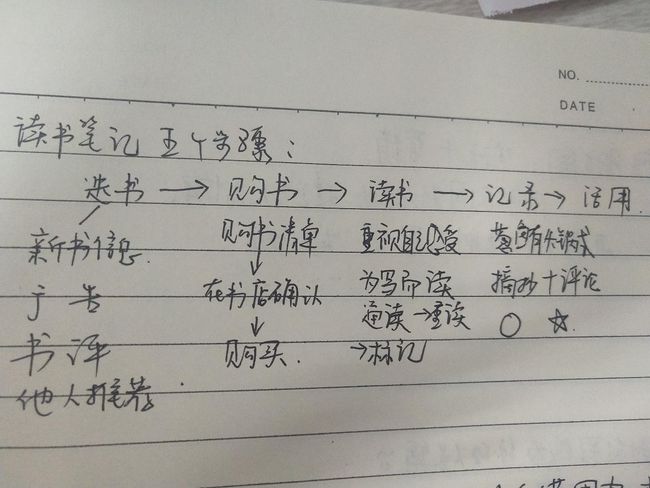 NO.
DATE
读书笔记五个步骤：
选书 → 购书 → 读书 → 记录 → 活用
新书信息 购书清单 重视自己感受
↓ 在书店确认 为写而读 摘抄+评论
广告
↓ 通读→重读 ○ ☆
书评 购买 →标记
他人推荐